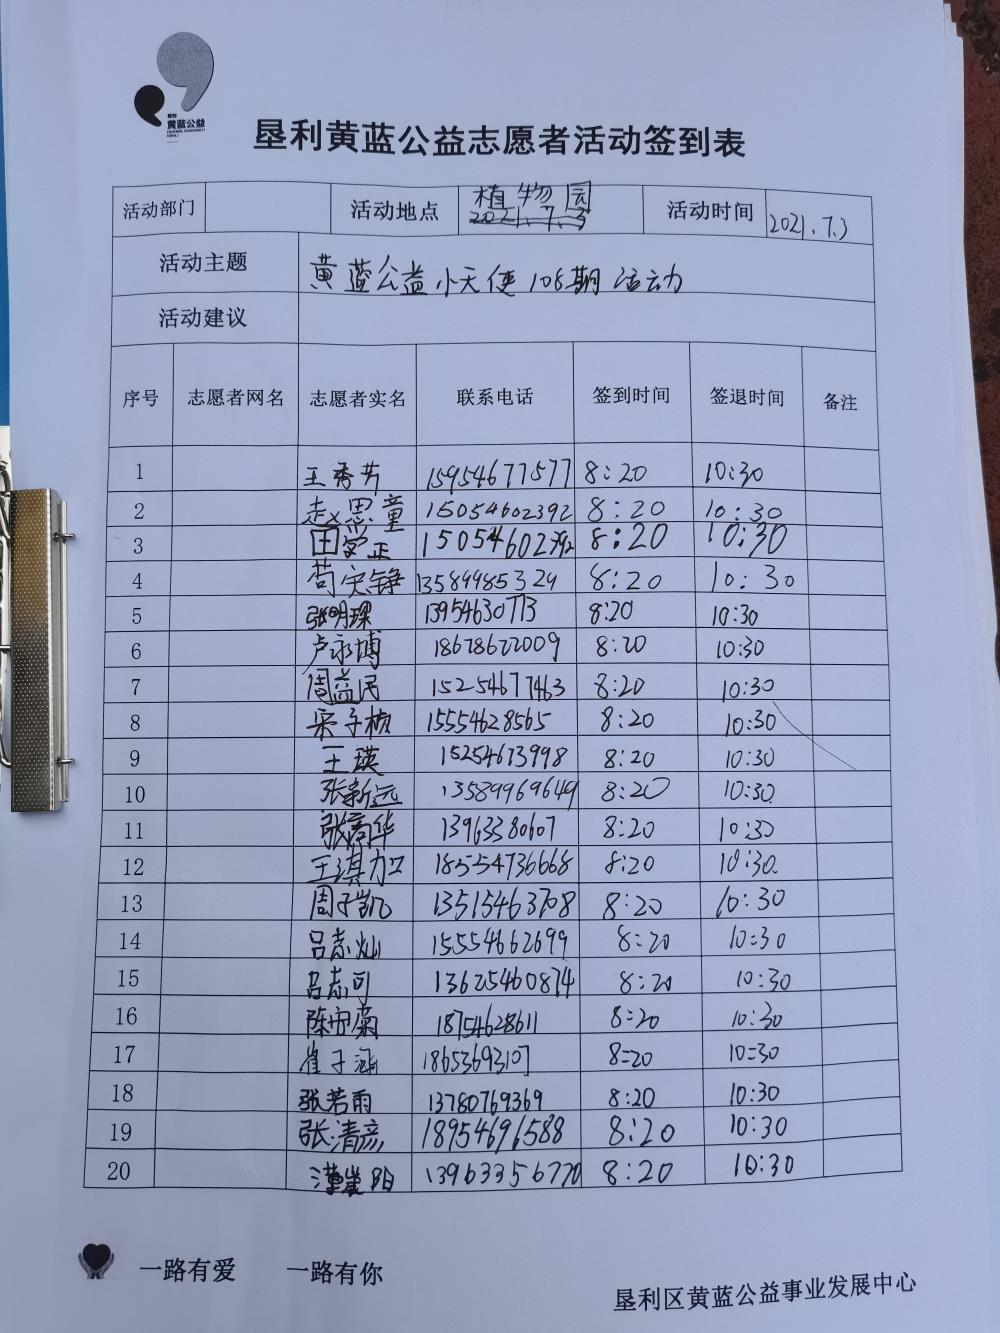 垦利
黄蓝公益
垦利黄蓝公益志愿者活动签到表
活动部门 活动地点 植物园 2021.7.3 活动时间 2021.7.3
活动主题 黄蓝公益小天使108期活动
活动建议
序号 志愿者网名 志愿者实名 联系电话 签到时间 签退时间 备注
1 王秀芳 15954677577 8:20 10:30
2 赵思童 15054602392 8:20 10:30
3 田 正 15054602392 8:20 10:30
4 苟 铮 13589985329 8:20 10:30
5 张明琛 13954630773 8:20 10:30
6 卢永博 18678622009 8:20 10:30
7 周益民 15254677463 8:20 10:30
8 宋子核 15554628565 8:20 10:30
9 王瑛 15254673998 8:20 10:30
10 张新远 13589969649 8:20 10:30
11 张 华 13963380607 8:20 10:30
12 王琪加 18554736668 8:20 10:30
13 周子凯 13515463708 8:20 10:30
14 吕志灿 15554662699 8:20 10:30
15 吕志可 13625460874 8:20 10:30
16 陈 菊 18754628611 8:20 10:30
17 崔子涵 18653693107 8=20 10=30
18 张若雨 13780769369 8:20 10:30
19 张清彦 18954696588 8:20 10:30
20 阳 13963356770 8:20 10:30
一路有爱 一路有你
垦利区黄蓝公益事业发展中心